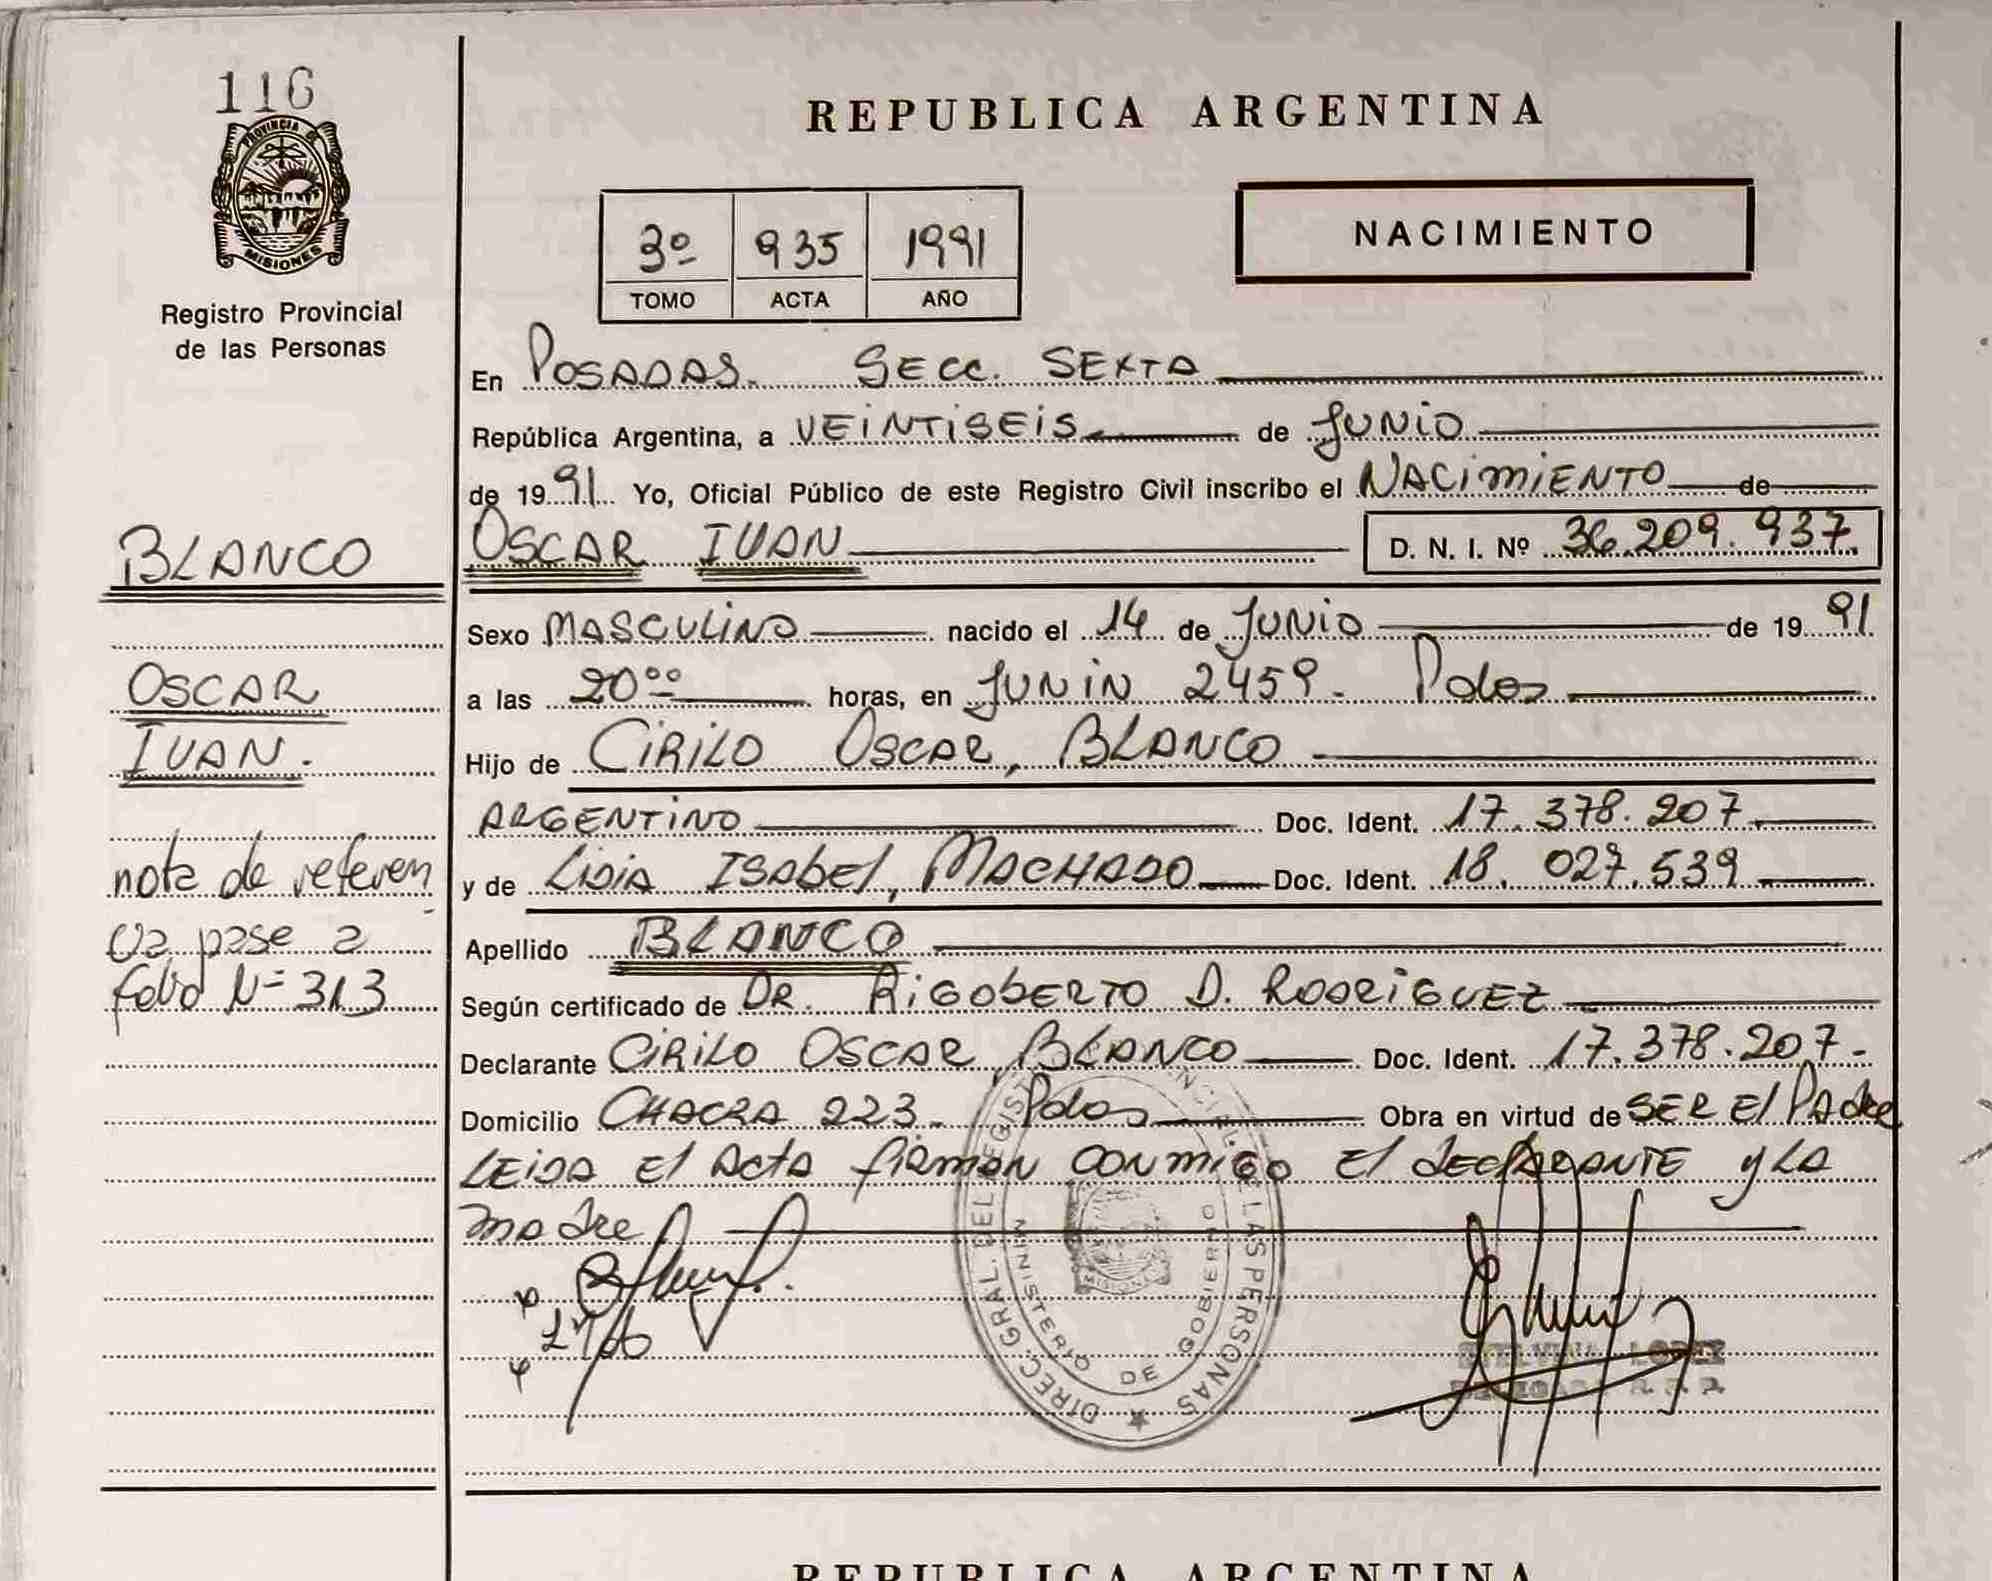 116
PROVINCIA DE
MISIONES
Registro Provincial
de las Personas
BLANCO
OSCAR
IVAN.
nota de referen
cia pase a
folio Nº 313
REPUBLICA ARGENTINA
3º 935 1991
TOMO ACTA AÑO
NACIMIENTO
En POSADAS. SECC. SEXTA
República Argentina, a VEINTISEIS de JUNIO
de 1991 Yo, Oficial Público de este Registro Civil inscribo el NACIMIENTO de
OSCAR IVAN D. N. I. Nº 36.209.937
Sexo MASCULINO nacido el 14 de JUNIO de 1991
a las 20⁰⁰ horas, en JUNIN 2459. Pdas
Hijo de CIRILO OSCAR, BLANCO
ARGENTINO Doc. Ident. 17.378.207
y de LIDIA ISABEL, MACHADO Doc. Ident. 18.027.539
Apellido BLANCO
Según certificado de DR. RIGOBERTO D. RODRIGUEZ
Declarante CIRILO OSCAR, BLANCO Doc. Ident. 17.378.207-
Domicilio CHACRA 223. Pdas Obra en virtud de SER El PAdre
LEIDA El Acta firman conmigo El declarante y LA
madre
DIREC. GRAL. DEL REGIST NCIAL DE LAS PERSONAS
MINISTERIO DE GOBIERNO
MISIONES
LOPEZ
REPUBLICA ARGENTINA